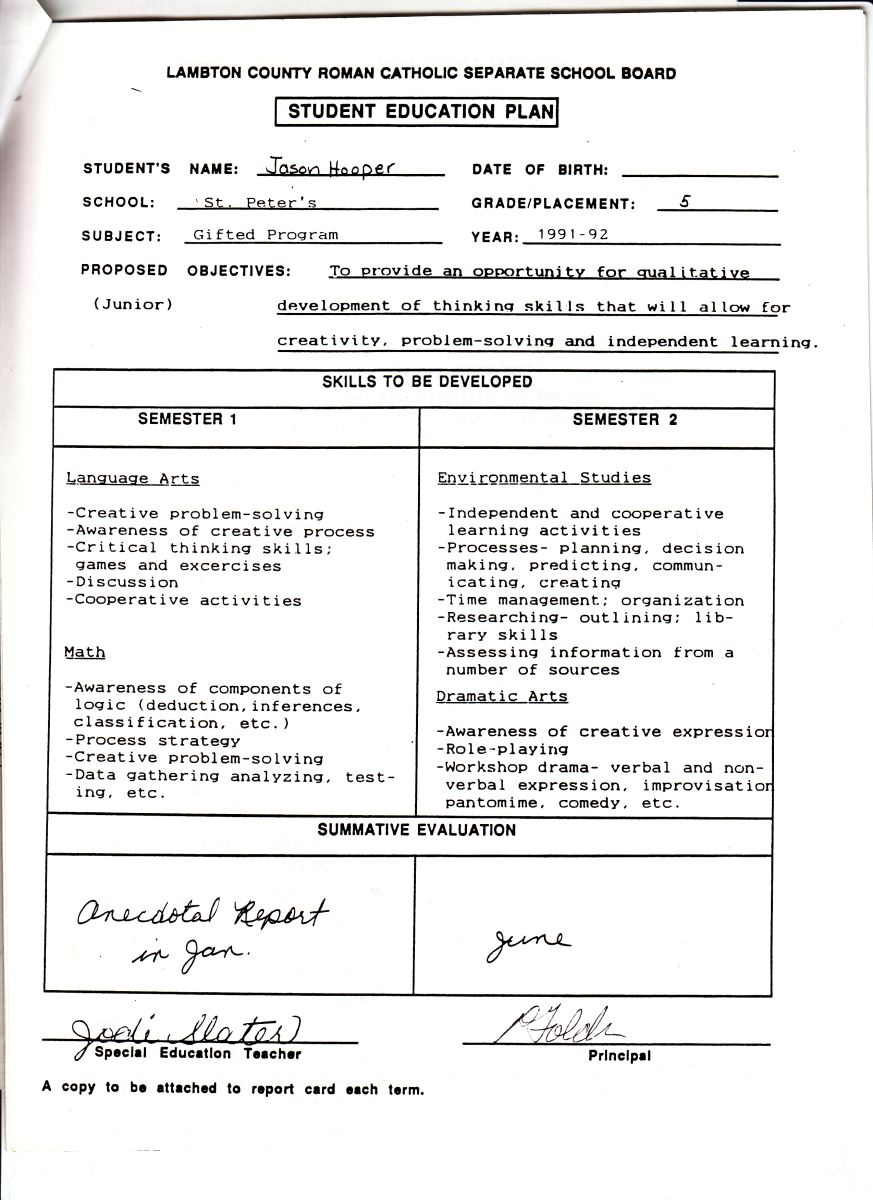 LAMBTON COUNTY ROMAN CATHOLIC SEPARATE SCHOOL BOARD
STUDENT EDUCATION PLAN
STUDENT'S NAME: Jason Hooper DATE OF BIRTH:
SCHOOL: St. Peter's GRADE/PLACEMENT: 5
SUBJECT: Gifted Program YEAR: 1991-92
PROPOSED OBJECTIVES: To provide an opportunity for qualitative
(Junior) development of thinking skills that will allow for
creativity, problem-solving and independent learning.
SKILLS TO BE DEVELOPED
SEMESTER 1
Language Arts
-Creative problem-solving
-Awareness of creative process
-Critical thinking skills;
games and excercises
-Discussion
-Cooperative activities
Math
-Awareness of components of
logic (deduction, inferences,
classification, etc.)
-Process strategy
-Creative problem-solving
-Data gathering analyzing, test-
ing, etc.
SEMESTER 2
Environmental Studies
-Independent and cooperative
learning activities
-Processes- planning, decision
making, predicting, commun-
icating, creating
-Time management; organization
-Researching- outlining; lib-
rary skills
-Assessing information from a
number of sources
Dramatic Arts
-Awareness of creative expression
-Role-playing
-Workshop drama- verbal and non-
verbal expression, improvisation
pantomime, comedy, etc.
SUMMATIVE EVALUATION
Anecdotal Report
in Jan.
June
Jodi Slater
Special Education Teacher
Principal
A copy to be attached to report card each term.